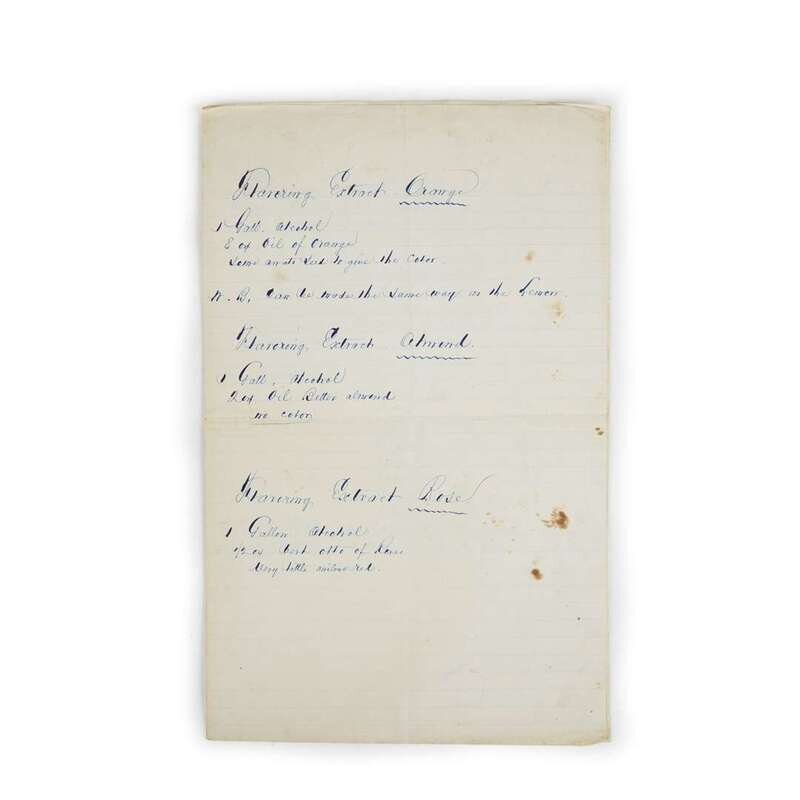 Flavoring Extract Orange
1 Gall. Alcohol
8 oz Oil of Orange
Some anato Seed to give the Color.
N. B. Can be made the same way as the Lemon.
Flavoring Extract Almond.
1 Gall. Alcohol
2 oz Oil Bitter almond
no color
Flavoring Extract Rose
1 Gallon Alcohol
1/2 oz best otto of Rose
Very little red.